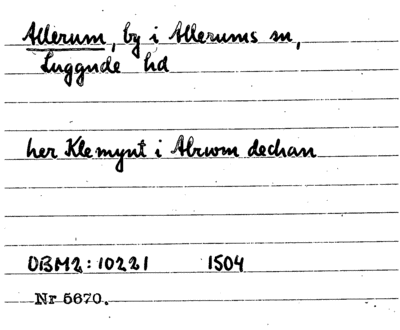 Allerum, by i Allerums sn,
Luggude hd
her Klemynt i Alrwm dechan
DBM2:10221 1504
Nr 5670.